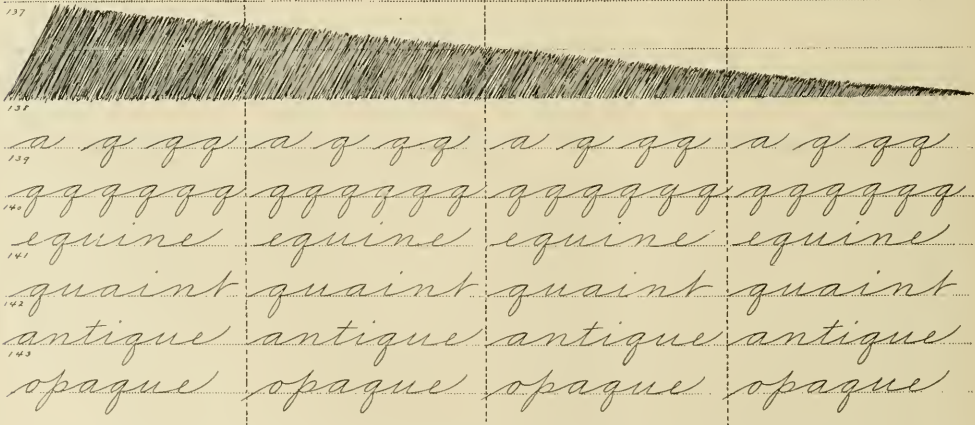 137
138
a q qq a q qq a q qq a q qq
139
qqqqqq qqqqqq qqqqqq qqqqqq
140
equine equine equine equine
141
quaint quaint quaint quaint
142
antique antique antique antique
143
opaque opaque opaque opaque